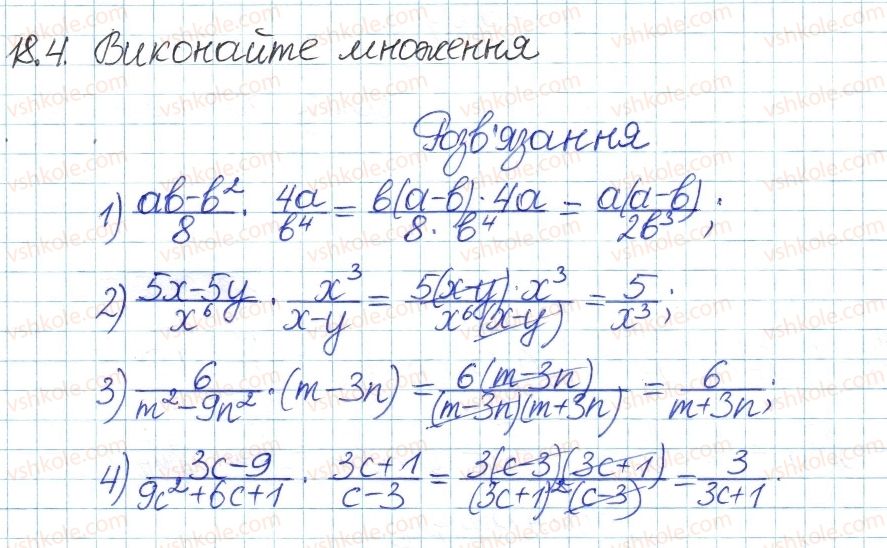 18.4. Виконайте множення
Розв'язання
1) (ab-b²)/8 · 4a/b⁴ = (b(a-b)·4a)/(8·b⁴) = a(a-b)/(2b³);
2) (5x-5y)/x⁶ · x³/(x-y) = (5(x-y)·x³)/(x⁶(x-y)) = 5/x³;
3) 6/(m²-9n²) · (m-3n) = 6(m-3n)/((m-3n)(m+3n)) = 6/(m+3n);
4) (3c-9)/(9c²+6c+1) · (3c+1)/(c-3) = (3(c-3)(3c+1))/((3c+1)²(c-3)) = 3/(3c+1).
vshkole.com